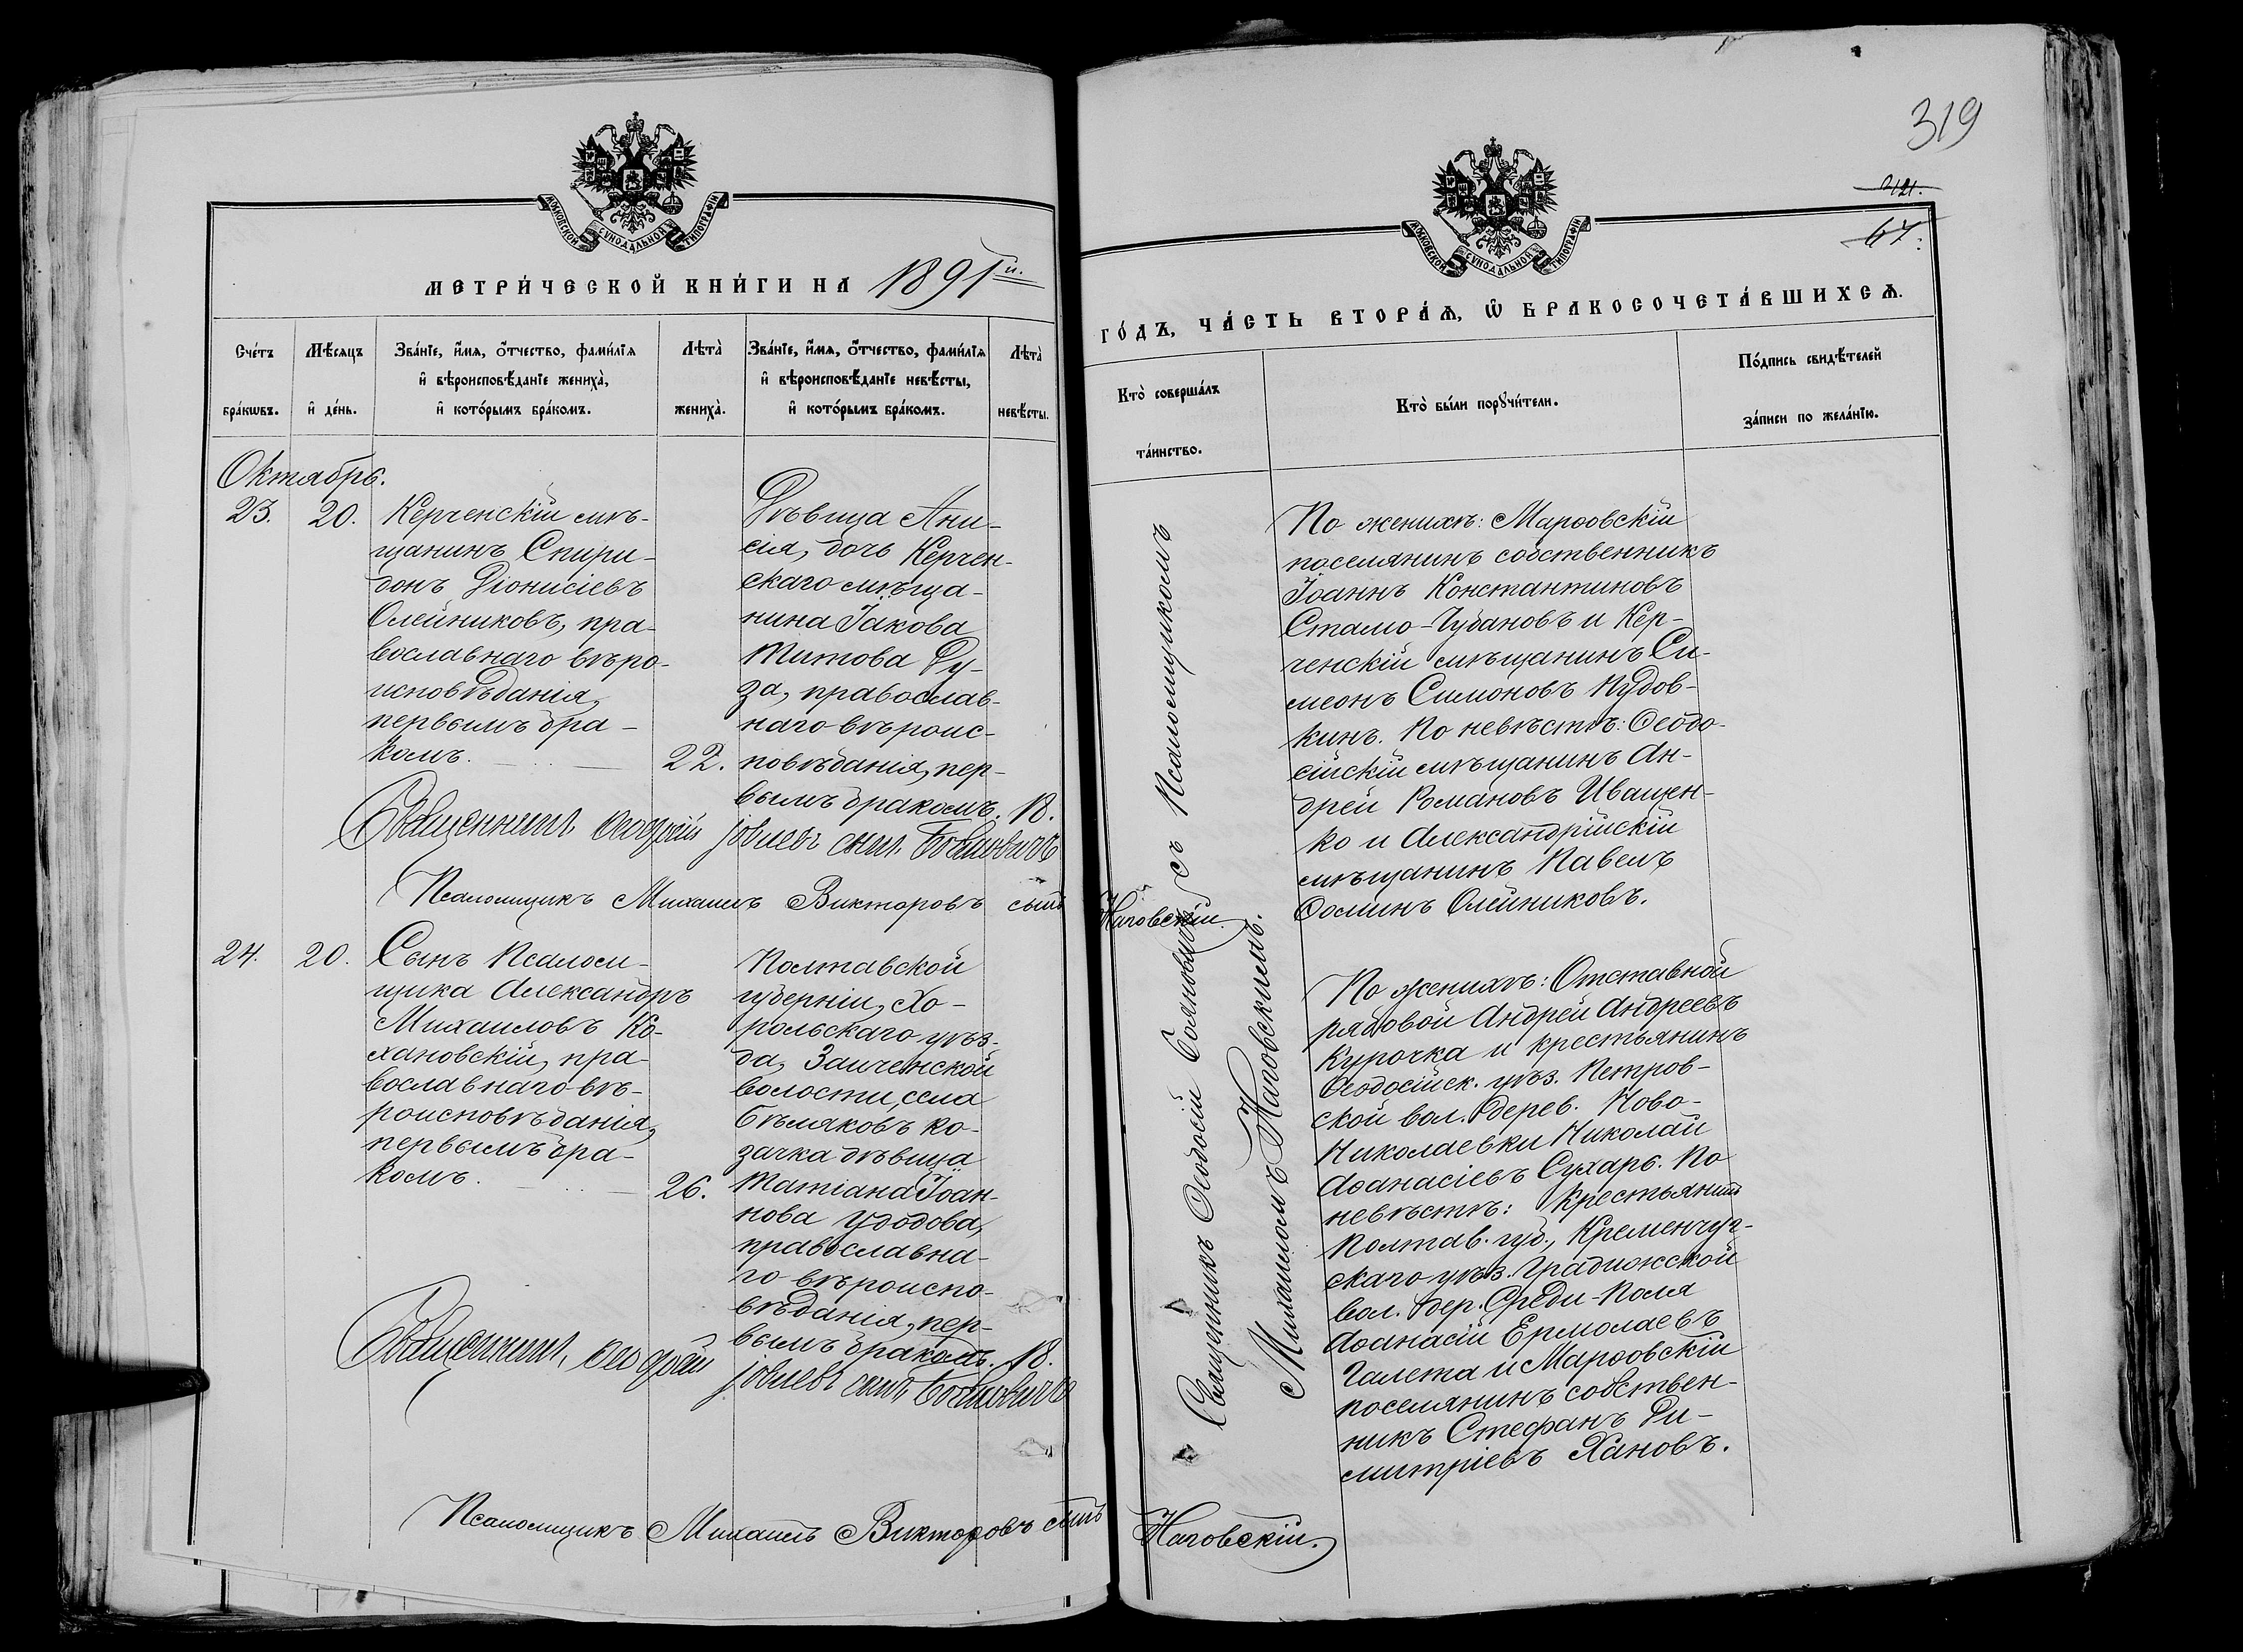 МОСКОВСКОЙ СѴНОДАЛЬНОЙ ТИПОГРАФІИ
МЕТРИ́ЧЕСКОЙ КНИ́ГИ НА 1891 й.
Сче́тъ бра́кѡвъ.
Мѣ́сяцъ и҆ де́нь.
Зва́нїе, и҆́мя, ѻ҆́тчество, фами́лїя и҆ вѣроисповѣ́данїе жениха̀, и҆ кото́рымъ бра́комъ.
Лѣта̀ жениха̀.
Зва́нїе, и҆́мя, ѻ҆́тчество, фами́лїя и҆ вѣроисповѣ́данїе невѣ́сты, и҆ кото́рымъ бра́комъ.
Лѣта̀ невѣ́сты.
Октябрь.
23.
20.
Керченскій мѣ-
щанинъ Спири-
донъ Діонисіевъ
Олейниковъ, пра-
вославнаго вѣро-
исповѣданія,
первымъ бра-
комъ.
22.
Дѣвица Ани-
сія, дочь Керчен-
скаго мѣща-
нина Іакова
Титова Ду-
за, православ-
наго вѣроис-
повѣданія, пер-
вымъ бракомъ.
18.
Священникъ Ѳеодосій Іовлевъ сынъ
Псаломщикъ Михаилъ Викторовъ сынъ
Наговскій.
24.
20.
Сынъ Псалом-
щика Александръ
Михаиловъ Ко-
хановскій, пра-
вославнаго вѣ-
роисповѣданія,
первымъ бра-
комъ.
26.
Полтавской
губерніи, Хо-
рольскаго уѣз-
да, Заиченской
волости, села
Бѣляковъ ко-
зачка дѣвица
Татіана Іоан-
нова Удодова,
православна-
го вѣроиспо-
вѣданія, пер-
вымъ бракомъ.
18.
Священникъ Ѳеодосій Іовлевъ сынъ
Псаломщикъ Михаилъ Викторовъ сынъ
Наговскій.
319
121.
67.
МОСКОВСКОЙ СѴНОДАЛЬНОЙ ТИПОГРАФІИ
ГО́ДЪ, ЧА́СТЬ ВТОРА́Ѧ, Ѡ҆ БРАКОСОЧЕТА́ВШИХСѦ.
Кто̀ соверша́лъ та́инство.
Кто̀ бы́ли порꙋчи́тели.
По́дпись свидѣ́телей за́писи по жела́нїю.
Священникъ Ѳеодосій съ Псаломщикомъ
Михаиломъ Наговскимъ.
По женихѣ: Марѳовскій
поселянинъ собственникъ
Іоаннъ Константиновъ
Стамо-Чубановъ и Кер-
ченскій мѣщанинъ Си-
меонъ Симоновъ Пудов-
кинъ. По невѣстѣ: Ѳеодо-
сійскій мѣщанинъ Ан-
дрей Романовъ Иващен-
ко и Александрійскій
мѣщанинъ Павелъ
Ѳоминъ Олейниковъ.
По женихѣ: Отставной
рядовой Андрей Андреевъ
Курочка и крестьянинъ
Ѳеодосійск. уѣз. Петров-
ской вол. дерев. Ново-
Николаевки Николай
Аѳанасіевъ Сухарь. По
невѣстѣ: Крестьянинъ
Полтав. губ., Кременчуг-
скаго уѣз. Градижской
вол. дер. Среди-Поля
Аѳанасій Ермолаевъ
Галета и Марѳовскій
поселянинъ собствен-
никъ Стефанъ Ди-
митріевъ Хановъ.